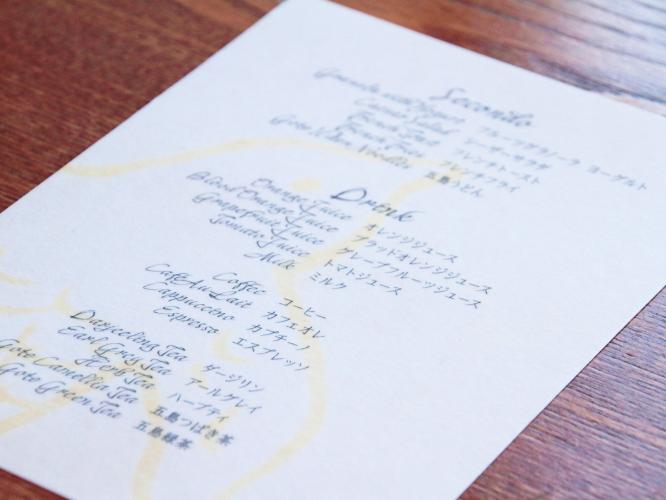 Secondo
Granola with Yogurt フルーツグラノーラ ヨーグルト
Caesar Salad シーザーサラダ
French Toast フレンチトースト
French Fries フレンチフライ
Goto Udon Noodles 五島うどん
Drink
Orange Juice オレンジジュース
Blood Orange Juice ブラッドオレンジジュース
Grapefruit Juice グレープフルーツジュース
Tomato Juice トマトジュース
Milk ミルク
Coffee コーヒー
Caffe Au Lait カフェオレ
Cappuccino カプチーノ
Espresso エスプレッソ
Darjeeling Tea ダージリン
Earl Grey Tea アールグレイ
Herb Tea ハーブティ
Goto Camellia Tea 五島つばき茶
Goto Green Tea 五島緑茶